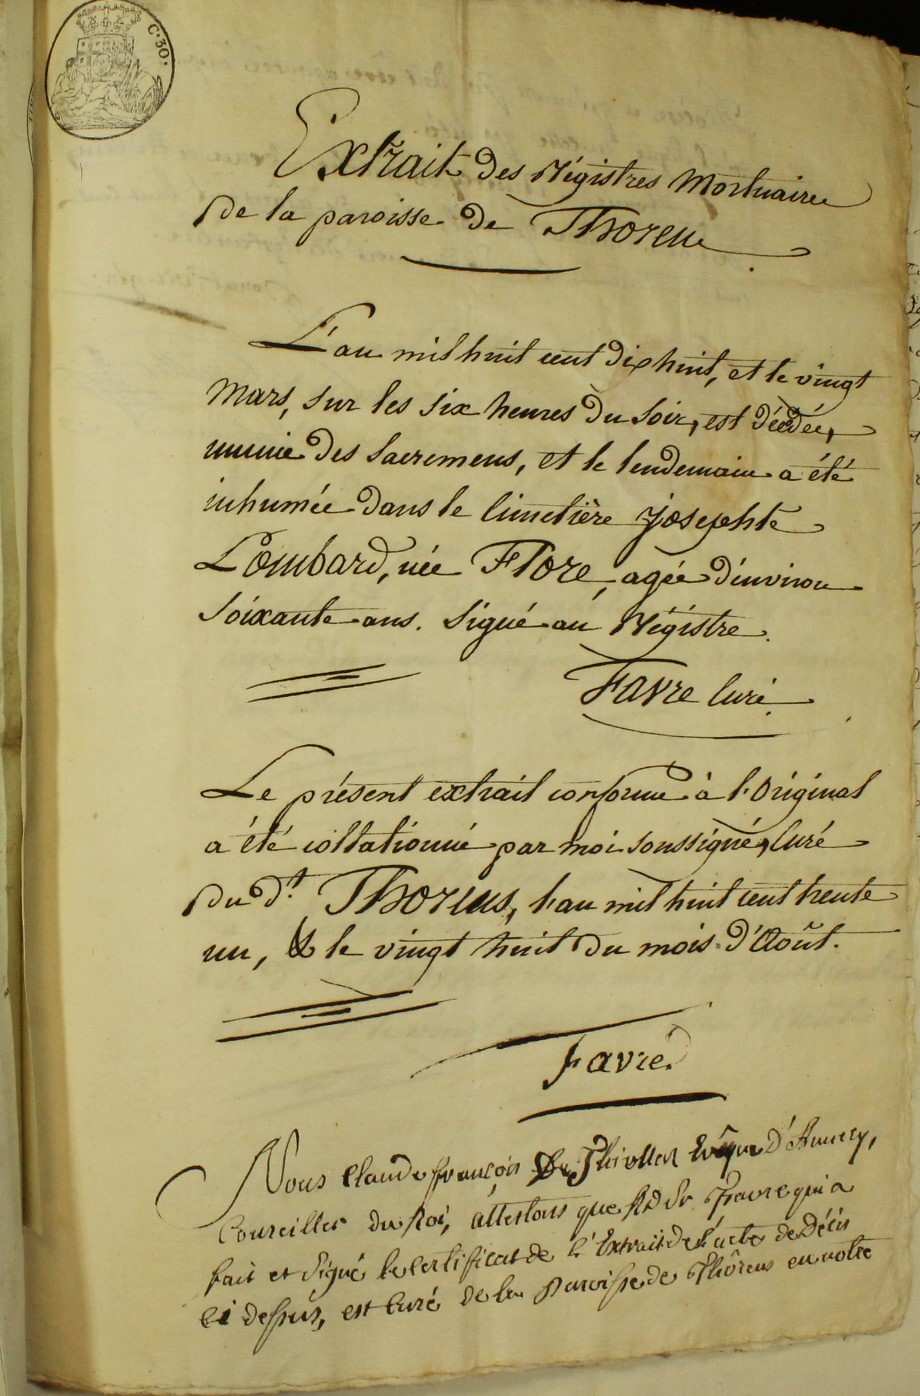 C. 30.
Extrait des Régistres Mortuaire
de la paroisse de Thorens
L'an mil huit cent dix huit, et le vingt
mars, sur les six heures du soir, est décédée,
munie des sacremens, et le lendemain a été
inhumée dans le cimetière Josephte
Lombard, née Flore, agée d'environ
soixante ans. Signé au Régistre.
Favre curé.
Le présent extrait conforme à l'Original
a été collationné par moi soussigné, curé
du dt. Thorens, l'an mil huit cent trente
un, & le vingt huit du mois d'Août.
Favre
Nous Claude françois De Thiollaz Evêque d'Annecy,
Conseiller du Roi, attestons que Rd Sr Favre qui a
fait et signé le certificat de l'Extrait de l'acte de Décès
ci dessus, est Curé de la Paroisse de Thôrens en notre